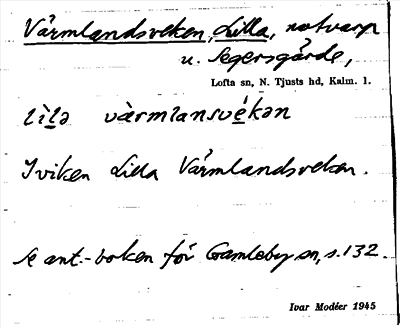 Värmlandsveken, Lilla, notvarp
u. Segersgärde,
Lofta sn, N. Tjusts hd, Kalm. l.
lìlə vàrmlansvékən
I viken Lilla Värmlandsveken.
Se ant.-boken för Gamleby sn, s. 132.
Ivar Modéer 1945